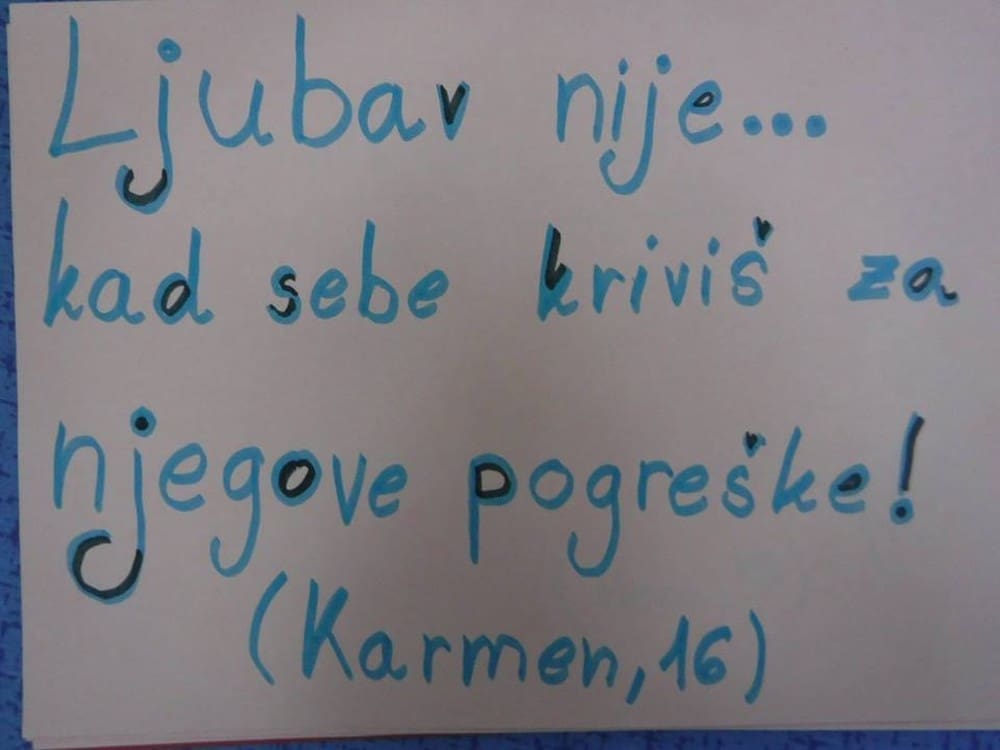 Ljubav nije...
kad sebe kriviš za
njegove pogreške!
(Karmen, 16)